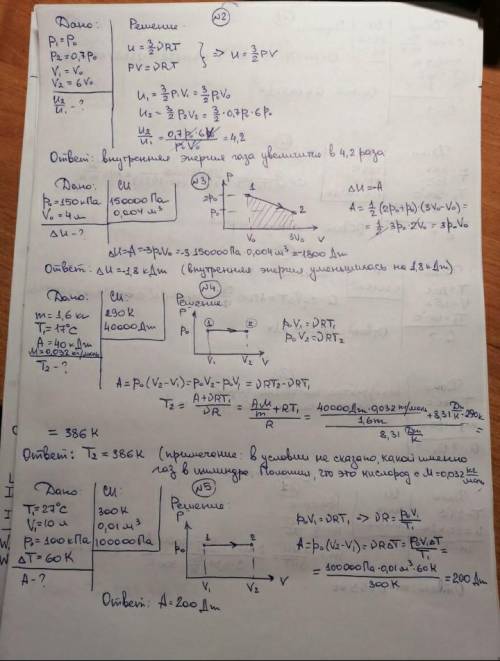 №2
Дано:
p₁ = p₀
p₂ = 0,7p₀
V₁ = V₀
V₂ = 6V₀
U₂/U₁ - ?
Решение:
U = 3/2 νRT
PV = νRT } ⇒ U = 3/2 PV
U₁ = 3/2 p₁V₁ = 3/2 p₀V₀
U₂ = 3/2 p₂V₂ = 3/2 · 0,7p₀ · 6p₀
U₂/U₁ = 0,7p₀ · 6V₀ / p₀V₀ = 4,2
Ответ: внутренняя энергия газа увеличится в 4,2 раза
№3
Дано:
p₀ = 150 кПа
V₀ = 4 л
ΔU - ?
СИ:
150000 Па
0,004 м³
P
2p₀
p₀
1
2
V₀
3V₀
V
ΔU = -A
A = 1/2 (2p₀ + p₀) · (3V₀ - V₀) =
= 1/2 · 3p₀ · 2V₀ = 3p₀V₀
ΔU = A = -3p₀V₀ = -3 · 150000 Па · 0,004 м³ = -1800 Дж
Ответ: ΔU = -1,8 кДж (внутренняя энергия уменьшилась на 1,8 кДж)
№4
Дано:
m = 1,6 кг
T₁ = 17°C
A = 40 кДж
M = 0,032 кг/моль
T₂ - ?
СИ:
290К
40000 Дж
Решение:
P
p₀
1
2
V₁
V₂
V
p₀V₁ = νRT₁
p₀V₂ = νRT₂
A = p₀(V₂ - V₁) = p₀V₂ - p₀V₁ = νRT₂ - νRT₁
T₂ = (A + νRT₁)/νR = (AM/m + RT₁)/R = (40000 Дж · 0,032 кг/моль / 1,6 кг + 8,31 Дж/К · 290к) / 8,31 Дж/К =
= 386 К
Ответ: T₂ = 386 К (примечание: в условии не сказано, какой именно
газ в цилиндре. Положим, что это кислород с M = 0,032 кг/моль
№5
Дано:
T₁ = 27°C
V₁ = 10 л
P₀ = 100 кПа
ΔT = 60 К
A - ?
СИ:
300К
0,01 м³
100000 Па
Решение:
P
p₀
1
2
V₁
V₂
V
p₀V₁ = νRT₁ ⇒ νR = p₀V₁/T₁
A = p₀(V₂ - V₁) = νRΔT = p₀V₁ΔT/T₁ =
= 100000 Па · 0,01 м³ · 60 К / 300 К = 200 Дж
Ответ: A = 200 Дж